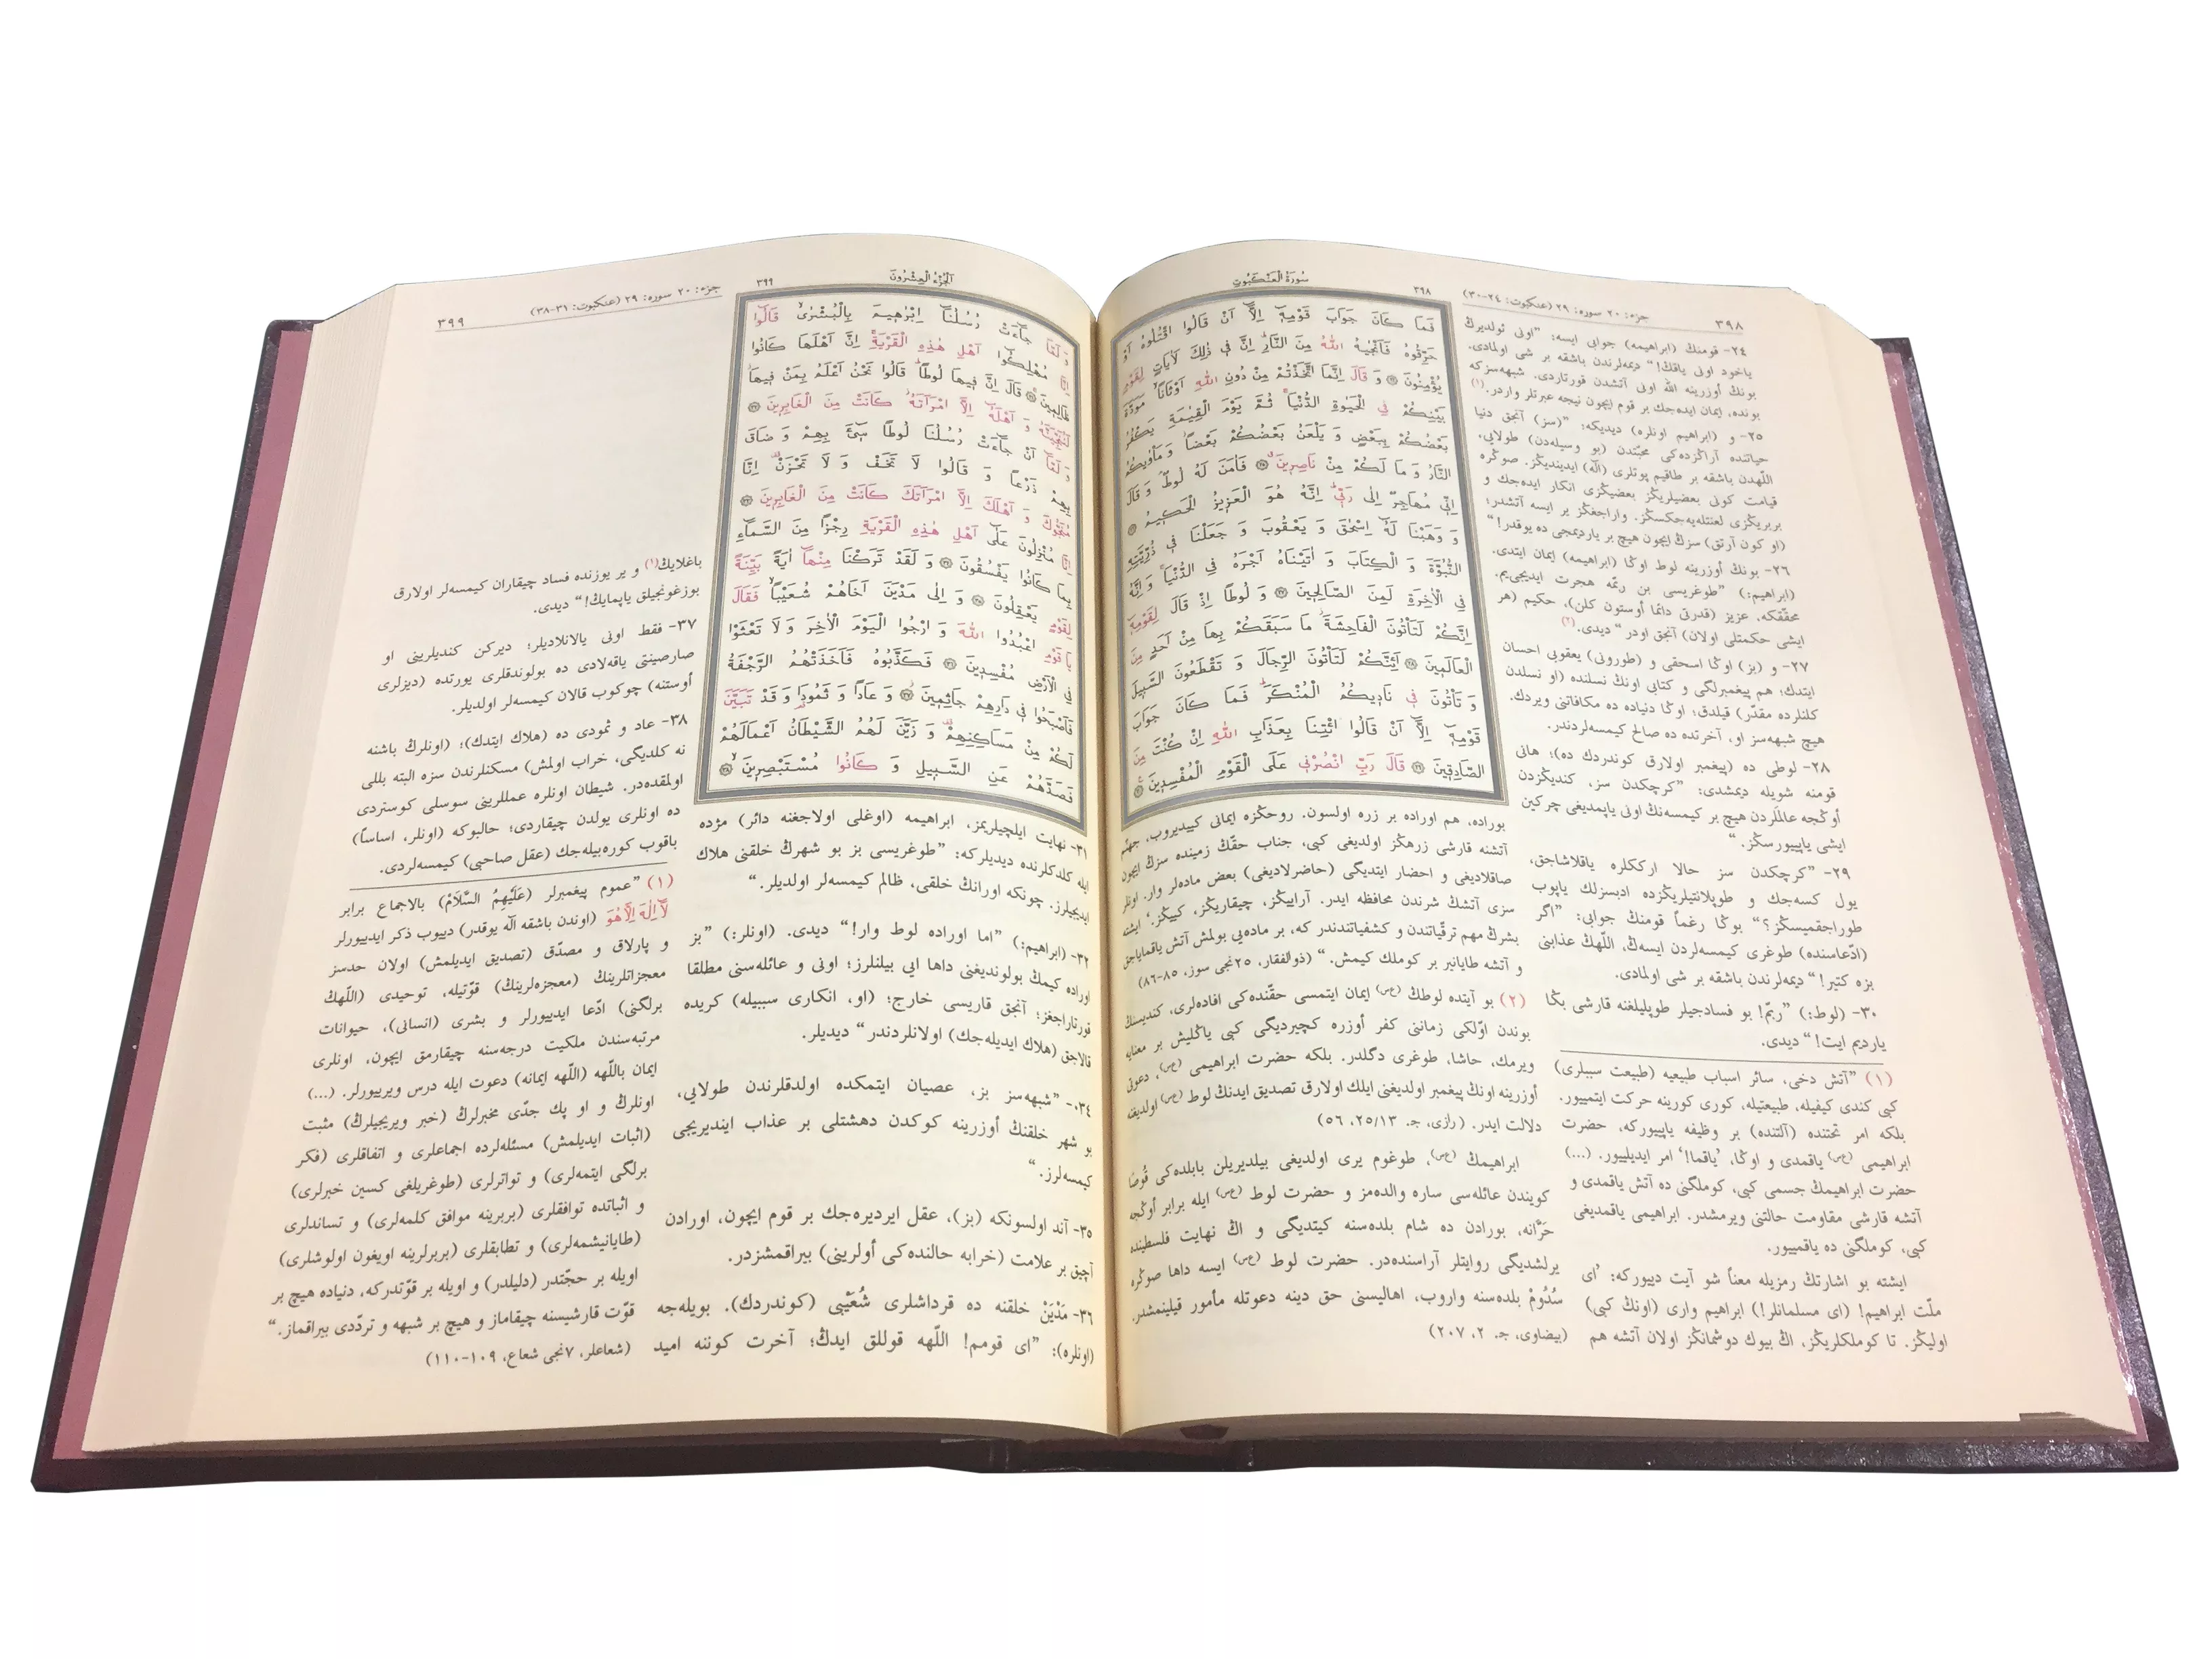 ٣٩٨
جزء: ٢٠ سوره: ٢٩ (عنكبوت: ٢٤-٣٠)
٣٩٨
سُورَةُ الْعَنْكَبُوتِ
فَمَا كَانَ جَوَابَ قَوْمِهٖٓ اِلَّٓا اَنْ قَالُوا اقْتُلُوهُ اَوْ
حَرِّقُوهُ فَاَنْجٰيهُ اللّٰهُ مِنَ النَّارِۜ اِنَّ فٖي ذٰلِكَ لَاٰيَاتٍ لِقَوْمٍ
يُؤْمِنُونَ ۝ وَ قَالَ اِنَّمَا اتَّخَذْتُمْ مِنْ دُونِ اللّٰهِ اَوْثَانًاۙ مَوَدَّةَ
بَيْنِكُمْ فِي الْحَيٰوةِ الدُّنْيَاۚ ثُمَّ يَوْمَ الْقِيٰمَةِ يَكْفُرُ
بَعْضُكُمْ بِبَعْضٍ وَ يَلْعَنُ بَعْضُكُمْ بَعْضًاۘ وَ مَاْوٰيكُمُ
النَّارُ وَ مَا لَكُمْ مِنْ نَاصِرٖينَ ۝ فَاٰمَنَ لَهُ لُوطٌۢ وَ قَالَ
اِنّٖي مُهَاجِرٌ اِلٰى رَبّٖيۜ اِنَّهُ هُوَ الْعَزٖيزُ الْحَكٖيمُ ۝
وَ وَهَبْنَا لَهُٓ اِسْحٰقَ وَ يَعْقُوبَ وَ جَعَلْنَا فٖي ذُرِّيَّتِهِ
النُّبُوَّةَ وَ الْكِتَابَ وَ اٰتَيْنَاهُ اَجْرَهُ فِي الدُّنْيَاۚ وَ اِنَّهُ
فِي الْاٰخِرَةِ لَمِنَ الصَّالِحٖينَ ۝ وَ لُوطًا اِذْ قَالَ لِقَوْمِهٖٓ
اِنَّكُمْ لَتَاْتُونَ الْفَاحِشَةَۘ مَا سَبَقَكُمْ بِهَا مِنْ اَحَدٍ مِنَ
الْعَالَمٖينَ ۝ اَئِنَّكُمْ لَتَاْتُونَ الرِّجَالَ وَ تَقْطَعُونَ السَّبٖيلَ
وَ تَاْتُونَ فٖي نَادٖيكُمُ الْمُنْكَرَۜ فَمَا كَانَ جَوَابَ
قَوْمِهٖٓ اِلَّٓا اَنْ قَالُوا ائْتِنَا بِعَذَابِ اللّٰهِ اِنْ كُنْتَ مِنَ
الصَّادِقٖينَ ۝ قَالَ رَبِّ انْصُرْنٖي عَلَى الْقَوْمِ الْمُفْسِدٖينَ ۝
٢٤- قومنك (ابراهيمه) جوابى ايسه: ”اونى ئولديرڭ
ياخود اونى ياقڭ!“ ديمه‌لرندن باشقه بر شى اولمادى.
بونك أوزرينه الله اونى آتشدن قورتاردى. شبهه‌سزكه
بونده، ايمان ايده‌جك بر قوم ايچون نيجه عبرتلر واردر.(١)
٢٥- و (ابراهيم اونلره) ديديكه: ”(سز) آنجق دنيا
حياتنده آراڭزده‌كى محبّتدن (بو وسيله‌دن) طولايى،
اللّهدن باشقه بر طاقيم پوتلرى (اله) ايدينديڭز. صوڭره
قيامت كونى بعضيلريڭز بعضيڭزى انكار ايده‌جك و
بربريڭزى لعنتله‌يه‌جكسڭز. واراجغڭز ير ايسه آتشدر؛
(او كون آرتق) سزڭ ايچون هيچ بر ياردیمجى ده يوقدر!“
٢٦- بونك أوزرينه لوط اوڭا (ابراهيمه) ايمان ايتدى.
(ابراهيم:) ”طوغريسى بن ربّمه هجرت ايديجى‌يم.
محقّقكه، عزيز (قدرتى دائما أوستون كلن)، حكيم (هر
ايشى حكمتلى اولان) آنجق اودر“ ديدى.(٢)
٢٧- و (بز) اوڭا اسحقى و (طورونى) يعقوبى احسان
ايتدك؛ هم پيغمبرلگى و كتابى اونڭ نسلنده (او نسلدن
كلنلرده مقدّر) قيلدق؛ اوڭا دنياده ده مكافاتنى ويردك.
هيچ شبهه‌سز او، آخرتده ده صالح كيمسه‌لردندر.
٢٨- لوطى ده (پيغمبر اولارق كوندردك ده)؛ هانى
قومنه شويله ديمشدى: ”كرچكدن سز، كنديڭزدن
أوڭجه عالملردن هيچ بر كيمسه‌نڭ اونى ياپمديغى چركين
ايشى ياپييورسڭز.“
٢٩- ”كرچكدن سز حالا ارككلره ياقلاشاجق،
يول كسه‌جك و طوپلانتيلريڭزده ادبسزلك ياپوب
طوراجقميسڭز؟“ بوڭا رغماً قومنڭ جوابى: ”اگر
(ادّعاسنده) طوغرى كيمسه‌لردن ايسه‌ڭ، اللّهڭ عذابنى
بزه كتير!“ ديمه‌لرندن باشقه بر شى اولمادى.
٣٠- (لوط:) ”ربّم! بو فسادجيلر طوپليلغنه قارشى بڭا
يارديم ايت!“ ديدى.
(١) ”آتش دخى، سائر اسباب طبيعيه (طبيعت سببلرى)
كبى كندى كيفيله، طبيعتيله، كورى كورينه حركت ايتمييور.
بلكه امر تحتنده (آلتنده) بر وظيفه ياپييوركه، حضرت
ابراهيمى (ع‌ص) ياقمدى و اوڭا، ’ياقما!‘ امر ايديلييور. (...)
حضرت ابراهيمڭ جسمى كبى، كوملگنى ده آتش ياقمدى و
آتشه قارشى مقاومت حالتنى ويرمشدر. ابراهيمى ياقمديغى
كبى، كوملگنى ده ياقمييور.
ايشته بو اشارتڭ رمزيله معناً شو آيت دييوركه: ’اى
ملّت ابراهيم! (اى مسلمانلر!) ابراهيم وارى (اونڭ كبى)
اوليڭز. تا كوملكلريڭز، اڭ بيوك دوشمانڭز اولان آتشه هم
بوراده، هم اوراده بر زره اولسون. روحڭزه ايمانى كييديروب، جهنّم
آتشنه قارشى زرهڭز اولديغى كبى، جناب حقّڭ زمينده سزڭ ايچون
صاقلاديغى و احضار ايتديگى (حاضرلاديغى) بعض ماده‌لر وار. اونلر
سزى آتشڭ شرندن محافظه ايدر. آراييڭز، چيقاريڭز، كييڭز.‘ ايشته
بشرڭ مهم ترقّياتندن و كشفياتندندر كه، بر ماده‌يى بولمش آتش ياقماياجق
و آتشه طايانير بر كوملك كيمش.“ (ذوالفقار، ٢٥نجى سوز، ٨٥-٨٦)
(٢) بو آيتده لوطڭ (ع‌ص) ايمان ايتمسى حقّنده‌كى افاده‌لرى، كنديسنڭ
بوندن اوّلكى زماننى كفر أوزره كچيرديگى كبى ياڭليش بر معنايه
ويرمك، حاشا، طوغرى دگلدر. بلكه حضرت ابراهيمى (ع‌ص)، دعوتى
أوزرينه اونڭ پيغمبر اولديغنى ايلك اولارق تصديق ايدنڭ لوط (ع‌ص) اولديغنه
دلالت ايدر. (رازى، ج. ٢٥/١٣، ٥٦)
ابراهيمڭ (ع‌ص)، طوغوم يرى اولديغى بيلديريلن بابلده‌كى قُوصَا
كويندن عائله‌سى ساره والده‌مز و حضرت لوط (ع‌ص) ايله برابر أوڭجه
حَرَّانه، بورادن ده شام بلده‌سنه كيتديگى و اڭ نهايت فلسطينده
يرلشديگى روايتلر آراسنده‌در. حضرت لوط (ع‌ص) ايسه داها صوڭره
سُدُومْ بلده‌سنه واروب، اهاليسنى حق دينه دعوتله مأمور قيلينمشدر.
(بيضاوى، ج. ٢، ٢٠٧)
اَلْجُزْءُ الْعِشْرُونَ
٣٩٩
جزء: ٢٠ سوره: ٢٩ (عنكبوت: ٣١-٣٨)
٣٩٩
وَ لَمَّا جَٓاءَتْ رُسُلُنَٓا اِبْرٰهٖيمَ بِالْبُشْرٰىۙ قَالُٓوا
اِنَّا مُهْلِكُٓوا اَهْلِ هٰذِهِ الْقَرْيَةِۚ اِنَّ اَهْلَهَا كَانُوا
ظَالِمٖينَ ۝ قَالَ اِنَّ فٖيهَا لُوطًاۜ قَالُوا نَحْنُ اَعْلَمُ بِمَنْ فٖيهَاۘ
لَنُنَجِّيَنَّهُ وَ اَهْلَهُٓ اِلَّا امْرَاَتَهُۘ كَانَتْ مِنَ الْغَابِرٖينَ ۝
وَ لَمَّٓا اَنْ جَٓاءَتْ رُسُلُنَا لُوطًا سٖٓيءَ بِهِمْ وَ ضَاقَ
بِهِمْ ذَرْعًا وَ قَالُوا لَا تَخَفْ وَ لَا تَحْزَنْ۠ اِنَّا
مُنَجُّوكَ وَ اَهْلَكَ اِلَّا امْرَاَتَكَ كَانَتْ مِنَ الْغَابِرٖينَ ۝
اِنَّا مُنْزِلُونَ عَلٰٓى اَهْلِ هٰذِهِ الْقَرْيَةِ رِجْزًا مِنَ السَّمَٓاءِ
بِمَا كَانُوا يَفْسُقُونَ ۝ وَ لَقَدْ تَرَكْنَا مِنْهَٓا اٰيَةً بَيِّنَةً
لِقَوْمٍ يَعْقِلُونَ ۝ وَ اِلٰى مَدْيَنَ اَخَاهُمْ شُعَيْبًاۙ فَقَالَ
يَا قَوْمِ اعْبُدُوا اللّٰهَ وَ ارْجُوا الْيَوْمَ الْاٰخِرَ وَ لَا تَعْثَوْا
فِي الْاَرْضِ مُفْسِدٖينَ ۝ فَكَذَّبُوهُ فَاَخَذَتْهُمُ الرَّجْفَةُ
فَاَصْبَحُوا فٖي دَارِهِمْ جَاثِمٖينَ ۝ وَ عَادًا وَ ثَمُودَا وَ قَدْ تَبَيَّنَ
لَكُمْ مِنْ مَسَاكِنِهِمْ۠ وَ زَيَّنَ لَهُمُ الشَّيْطَانُ اَعْمَالَهُمْ
فَصَدَّهُمْ عَنِ السَّبٖيلِ وَ كَانُوا مُسْتَبْصِرٖينَۙ ۝
٣١- نهايت ايلچيلريمز، ابراهيمه (اوغلى اولاجغنه دائر) مژده
ايله كلدكلرنده ديديلركه: ”طوغريسى بز بو شهرڭ خلقنى هلاك
ايديجيلرز. چونكه اورانڭ خلقى، ظالم كيمسه‌لر اولديلر.“
٣٢- (ابراهيم:) ”اما اوراده لوط وار!“ ديدى. (اونلر:) ”بز
اوراده كيمڭ بولونديغنى داها ايى بيلنلرز؛ اونى و عائله‌سنى مطلقا
قورتاراجغز؛ آنجق قاريسى خارج؛ (او، انكارى سببيله) كريده
قالاجق (هلاك ايديله‌جك) اولانلردندر“ ديديلر.
٣٤- ”شبهه‌سز بز، عصيان ايتمكده اولدقلرندن طولايى،
بو شهر خلقنڭ أوزرينه كوكدن دهشتلى بر عذاب اينديريجى
كيمسه‌لرز.“
٣٥- آند اولسونكه (بز)، عقل ايرديره‌جك بر قوم ايچون، اورادن
آچيق بر علامت (خرابه حالنده‌كى أولرينى) بيراقمشزدر.
٣٦- مَدْيَنْ خلقنه ده قرداشلرى شُعَيْبى (كوندردك). بويله‌جه
(اونلره): ”اى قومم! اللّهه قوللق ايدڭ؛ آخرت كوننه اميد
باغلايڭ(١) و ير يوزنده فساد چيقاران كيمسه‌لر اولارق
بوزغونجيلق ياپمايڭ!“ ديدى.
٣٧- فقط اونى يالانلاديلر؛ ديركن كنديلرينى او
صارصينتى ياقه‌لادى ده بولوندقلرى يورتده (ديزلرى
أوستنه) چوكوب قالان كيمسه‌لر اولديلر.
٣٨- عاد و ثمودى ده (هلاك ايتدك)؛ (اونلرڭ باشنه
نه كلديگى، خراب اولمش) مسكنلرندن سزه البته بللى
اولمقده‌در. شيطان اونلره عمللرينى سوسلى كوستردى
ده اونلرى يولدن چيقاردى؛ حالبوكه (اونلر، اساساً)
باقوب كوره‌بيله‌جك (عقل صاحبى) كيمسه‌لردى.
(١) ”عموم پيغمبرلر (عَلَيْهِمُ السَّلَامْ) بالاجماع برابر
لَٓا اِلٰهَ اِلَّا هُوَ (اوندن باشقه اله يوقدر) دييوب ذكر ايدييورلر
و پارلاق و مصدّق (تصديق ايديلمش) اولان حدسز
معجزاتلرينڭ (معجزه‌لرينڭ) قوّتيله، توحيدى (اللّهڭ
برلگنى) ادّعا ايدييورلر و بشرى (انسانى)، حيوانات
مرتبه‌سندن ملكيت درجه‌سنه چيقارمق ايچون، اونلرى
ايمان باللّهه (اللّهه ايمانه) دعوت ايله درس ويرييورلر. (...)
اونلرڭ و او پك جدّى مخبرلرڭ (خبر ويريجيلرڭ) مثبت
(اثبات ايديلمش) مسئله‌لرده اجماعلرى و اتفاقلرى (فكر
برلگى ايتمه‌لرى) و تواترلرى (طوغريلغى كسين خبرلرى)
و اثباتده توافقلرى (بربرينه موافق كلمه‌لرى) و تساندلرى
(طايانيشمه‌لرى) و تطابقلرى (بربرلرينه اويغون اولوشلرى)
اويله بر حجّتدر (دليلدر) و اويله بر قوّتدركه، دنياده هيچ بر
قوّت قارشيسنه چيقاماز و هيچ بر شبهه و تردّدى بيراقماز.“
(شعاعلر، ٧نجى شعاع، ١٠٩-١١٠)